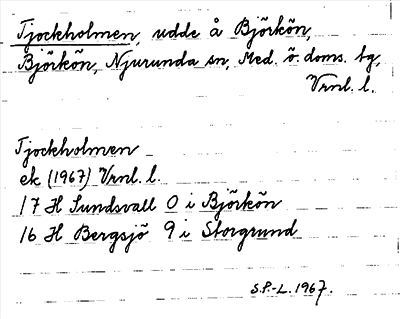 Tjockholmen, udde å Björkön,
Björkön, Njurunda sn, Med. ö. doms. tg,
Vrnl. l.
Tjockholmen
ek (1967) Vrnl. l.
17 H Sundsvall 0 i Björkön
16 H Bergsjö 9 i Storgrund
S.P.-L. 1967.